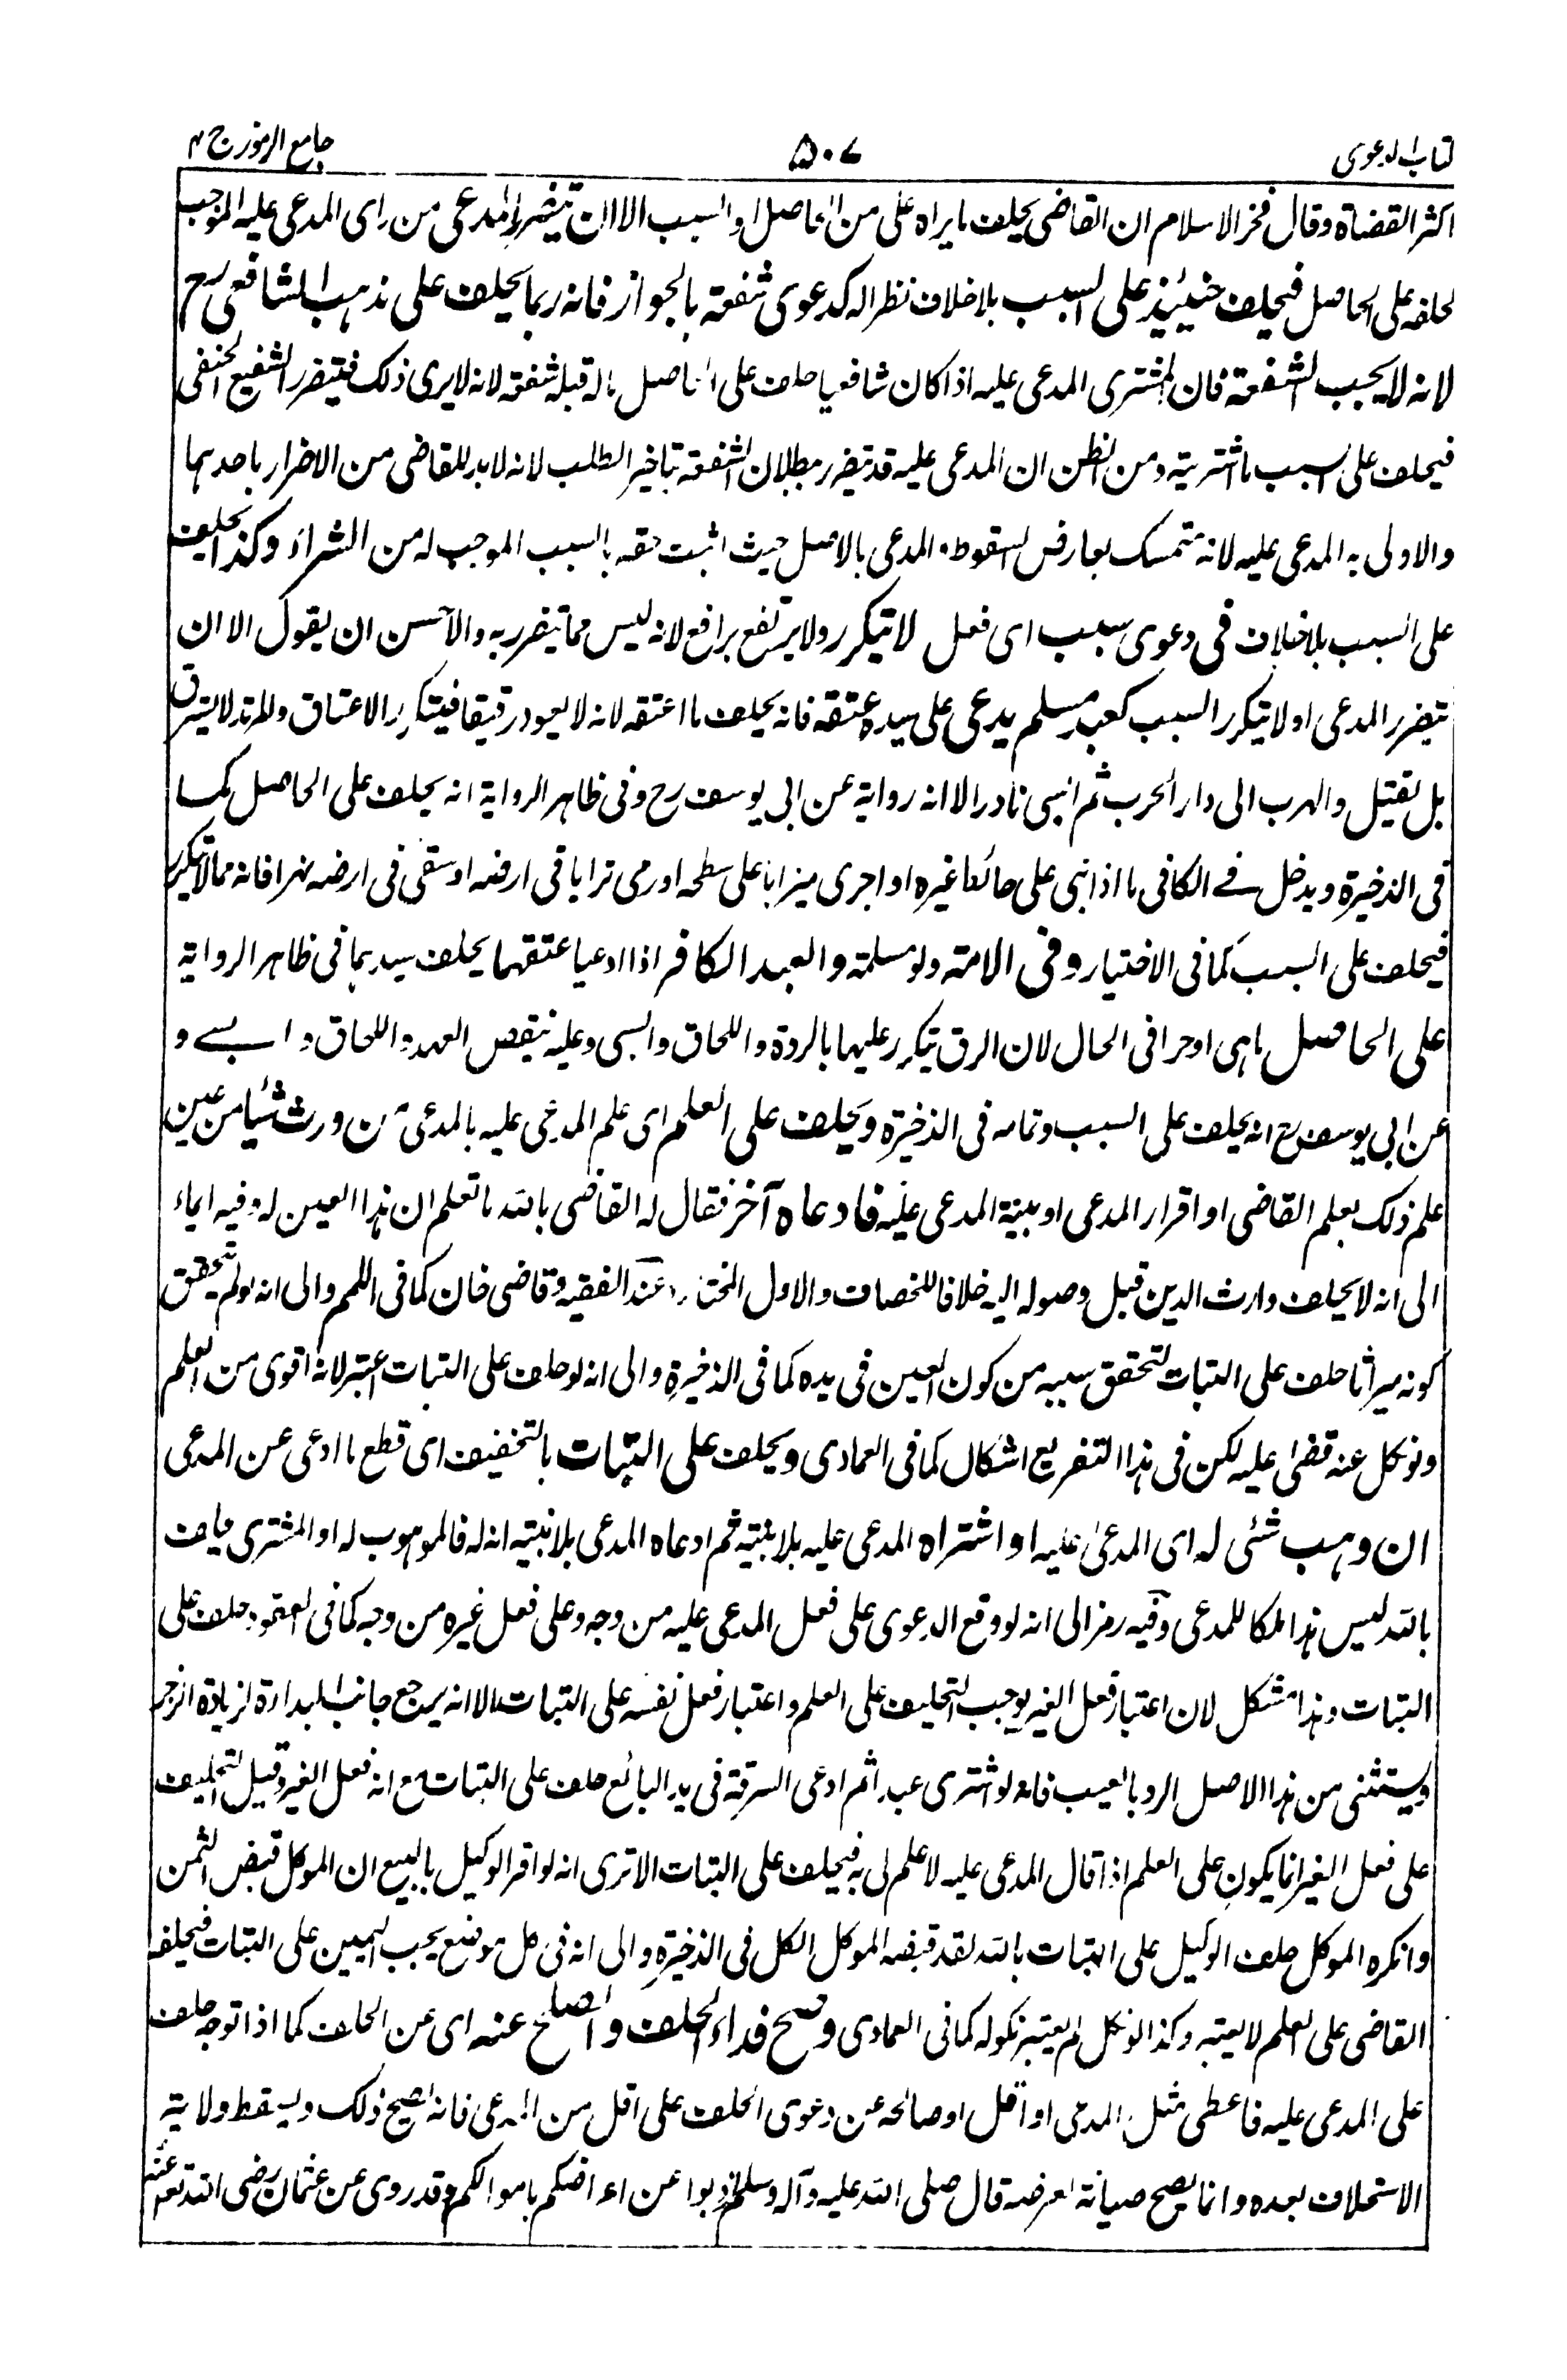 كتاب الدعوى ٥٠٧ جامع الرموز ج ٣
اكثر القضاة وقال فخر الاسلام ان القاضى يحلف ما يراه على من الحاصل او السبب الا ان يتضرر المدعى من راى المدعى عليه الموجب
لحلفه على الحاصل فيحلف حينئذ على السبب بلا خلاف نظرا له كدعوى شفعة بالجوار فانه ربما يحلف على مذهب الشافعى رح
لانه لا يجب الشفعة فان المشترى المدعى عليه اذا كان شافعيا حلف على الحاصل ماله قبله شفعة لانه لا يرى ذلك فيتضرر الشفيع الحنفى
فيحلف على السبب ما اشتريته ومن الظن ان المدعى عليه قد يتضرر ببطلان الشفعة بتاخير الطلب لانه لا بد للقاضى من الاضرار باحدهما
والاولى به المدعى عليه لانه متمسك بعارض لسقوطه المدعى بالاصل حيث اثبت حقه بالسبب الموجب له من الشراء وكذا يحلف
على السبب بلا خلاف فى دعوى سبب اى فعل لا يتكرر ولا يرتفع برافع لانه ليس مما يتضرر به والاحسن ان يقول الا ان
يتضرر المدعى او لا يتكرر السبب كعبد مسلم يدعى على سيده عتقه فانه يحلف ما اعتقه لانه لا يعود رقيقا فيتكرر الاعتاق والمرتد لا يسترق
بل يقتل والهرب الى دار الحرب ثم السبى نادر الا انه رواية عن ابى يوسف رح وفى ظاهر الرواية انه يحلف على الحاصل كما
فى الذخيرة ويدخل فى الكافى ما اذا بنى على حائط غيره او اجرى ميزابا على سطحه او رمى ترابا فى ارضه او سقى فى ارضه نهرا فانه مما لا يتكرر
فيحلف على السبب كما فى الاختيار وفى الامة ولو مسلمة والعبد الكافر اذا ادعيا عتقهما يحلف سيدهما فى ظاهر الرواية
على الحاصل ما هى او حر افى الحال لان الرق يتكرر عليها بالردة واللحاق والسبى وعليه بنقض العهد واللحاق والسبے و
عن ابى يوسف رح انه يحلف على السبب وتمامه فى الذخيرة ويحلف على العلم اى علم المدعى عليه بالمدعى من ورث شيئا من عين
علم ذلك بعلم القاضى او اقرار المدعى او بينة المدعى عليه فادعاه آخر فقال له القاضى بالله ما تعلم ان هذا العين له وفيه ايماء
الى انه لا يحلف وارث الدين قبل وصوله اليه خلافا للخصاف والاول المختار عند الفقيه وقاضى خان كما فى اللمم والى انه لو لم يتحقق
كونه ميراثا حلف على البتات لتحقق سببه من كون العين فى يده كما فى الذخيرة والى انه لو حلف على البتات اعتبر لانه اقوى من العلم
ولو نكل عنه قضى عليه لكن فى هذا التفريع اشكال كما فى العمادى ويحلف على البتات بالتخفيف اى قطع ما ادعى عن المدعى
ان وهب شئ له اى المدعى عليه او اشتراه المدعى عليه بلا بينة ثم ادعاه المدعى بلا بينة انه له فالموهوب له او المشترى يحلف
بالله ليس هذا ملكا للمدعى وفيه رمز الى انه لو وقع الدعوى على فعل المدعى عليه من وجه وعلى فعل غيره من وجه كما فى العقود حلف على
البتات وهذا مشكل لان اعتبار فعل الغير يوجب التحليف على العلم واعتبار فعل نفسه على البتات الا انه يرجح جانب البداءة لزيادة الزجر
ويستثنى من هذا الاصل الرد بالعيب فانه لو اشترى عبدا ثم ادعى السرقة فى يد البائع حلف على البتات مع انه فعل الغير وقيل التحليف
على فعل الغير انما يكون على العلم اذا قال المدعى عليه لا علم لى به فيحلف على البتات الا ترى انه لو اقر الوكيل بالبيع ان الموكل قبض الثمن
وانكره الموكل حلف الوكيل على البتات بالله لقد قبضه الموكل الكل فى الذخيرة والى انه فى كل موضع يجب اليمين على البتات فيحلف
القاضى على العلم لا يعتبر وكذا لو نكل لم يعتبر نكوله كما فى العمادى وصح فداء الحلف والصلح عنه اى عن الحلف كما اذا توجه حلف
على المدعى عليه فاعطى مثل المدعى او اقل او صالحه عن دعوى الحلف على اقل من المدعى فانه يصح ذلك ويسقط ولاية
الاستحلاف بعده وانما يصح صيانة لعرضه قال صلى الله عليه وآله وسلم ذبوا عن اعراضكم باموالكم وقد روى عن عثمان رضى الله تعه عنه